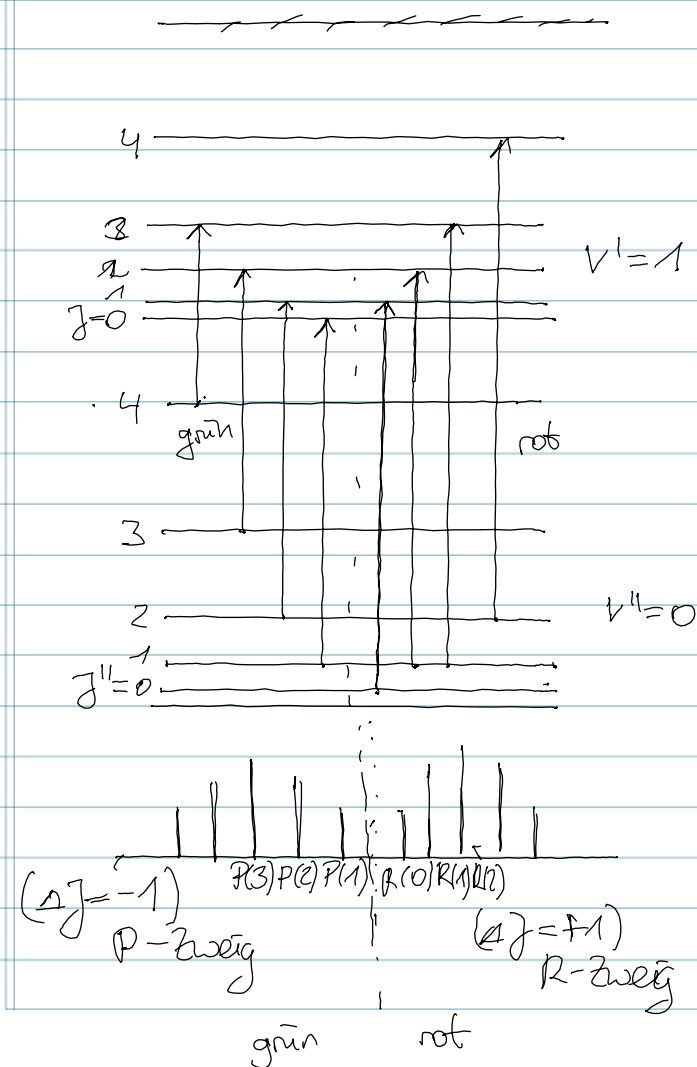 4
3
2
1
J=0
V'=1
4
grün
rot
3
2
V''=0
1
J''=0
P(3) P(2) P(1) R(0) R(1) R(2)
(ΔJ=-1)
P-Zweig
(ΔJ=+1)
R-Zweig
grün rot